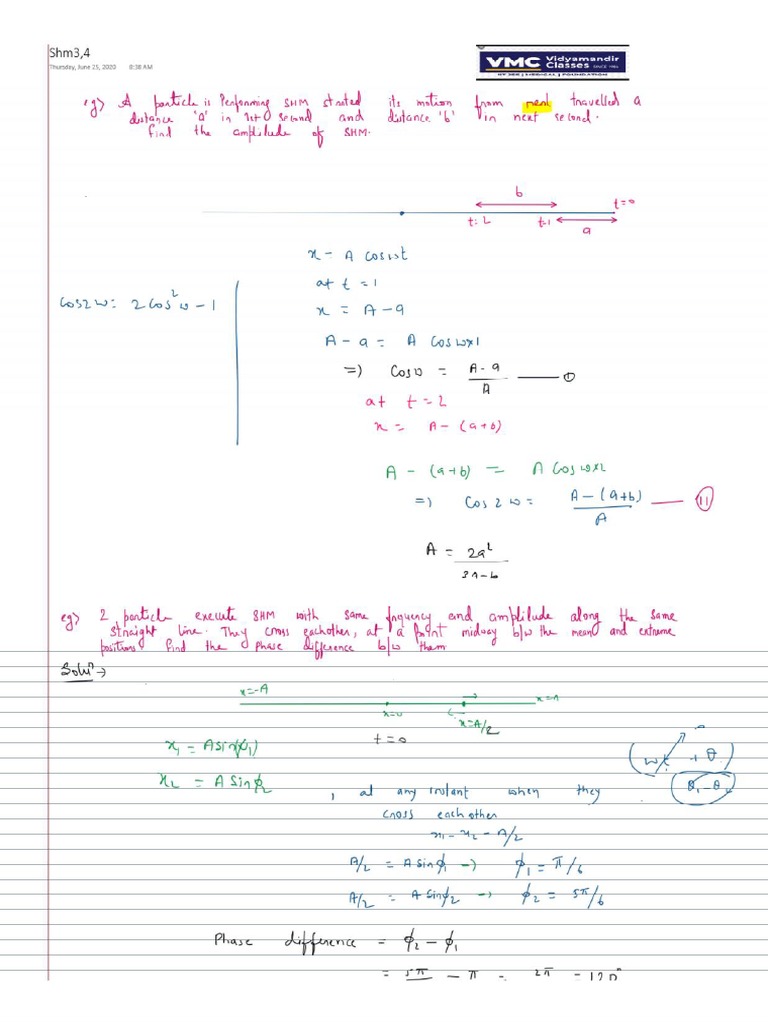 Shm3,4
Thursday, June 25, 2020 8:38 AM
VMC Vidyamandir Classes SINCE 1986
IIT JEE | MEDICAL | FOUNDATION
eg> A particle is Performing SHM started its motion from rest travelled a
distance 'a' in 1st second and distance 'b' in next second.
find the amplitude of SHM.
b
t=0
t=2 t=1
a
x = A cos wt
at t = 1
cos2w = 2cos²w - 1
x = A - a
A - a = A cos w×1
=> Cosw = A-a/A — (1)
at t = 2
x = A - (a+b)
A - (a+b) = A cos w×2
=> cos 2w = A-(a+b)/A — (11)
A = 2a²/3a-b
eg> 2 particle execute SHM with same frquency and amplitude along the same
straight line. They cross eachother, at a point midway b/w the mean and extreme
positions find the phase difference b/w them
Solu^n →
x=-A x=A
x=0 x=A/2
t=0
x₁ = A sin(φ₁)
(wt + θ)
x₂ = A Sinφ₂
θ₁-θ₂
, at any instant when they
cross eachother
x₁ = x₂ = A/2
A/2 = A sinφ₁ → φ₁ = π/6
A/2 = A sinφ₂ → φ₂ = 5π/6
Phase difference = φ₂ - φ₁
= 5π - π = 2π = 120°